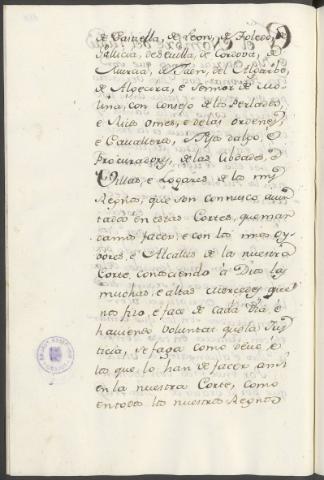 de Castiella, de Leon, de Toledo, de
Gallicia, de Sevilla, de Cordova, de
Murcia, de Jaen, del Algarbe,
de Algecira, e Sennor de Mo-
lina, con Consejo de los Perlados,
e Ricos Omes, e de las Ordenes,
e Cavalleros, Fijosdalgo, e
Procuradores, de las Cibdades, e
Villas, e Logares de los mis
Regnos, que son connusco ayun
tados en estas Cortes, que man
damos facer; e con los mios Oy-
dores, e Alcalles de la nuestra
Corte, conosciendo à Dios las
muchas, e altas Mercedes que
nos fizo, e face de cada dia, e
haviendo voluntat que la Jus
ticia, se faga como deve, e
los que lo han de facer ansi
en la nuestra Corte, como
en todos los nuestros Regnos